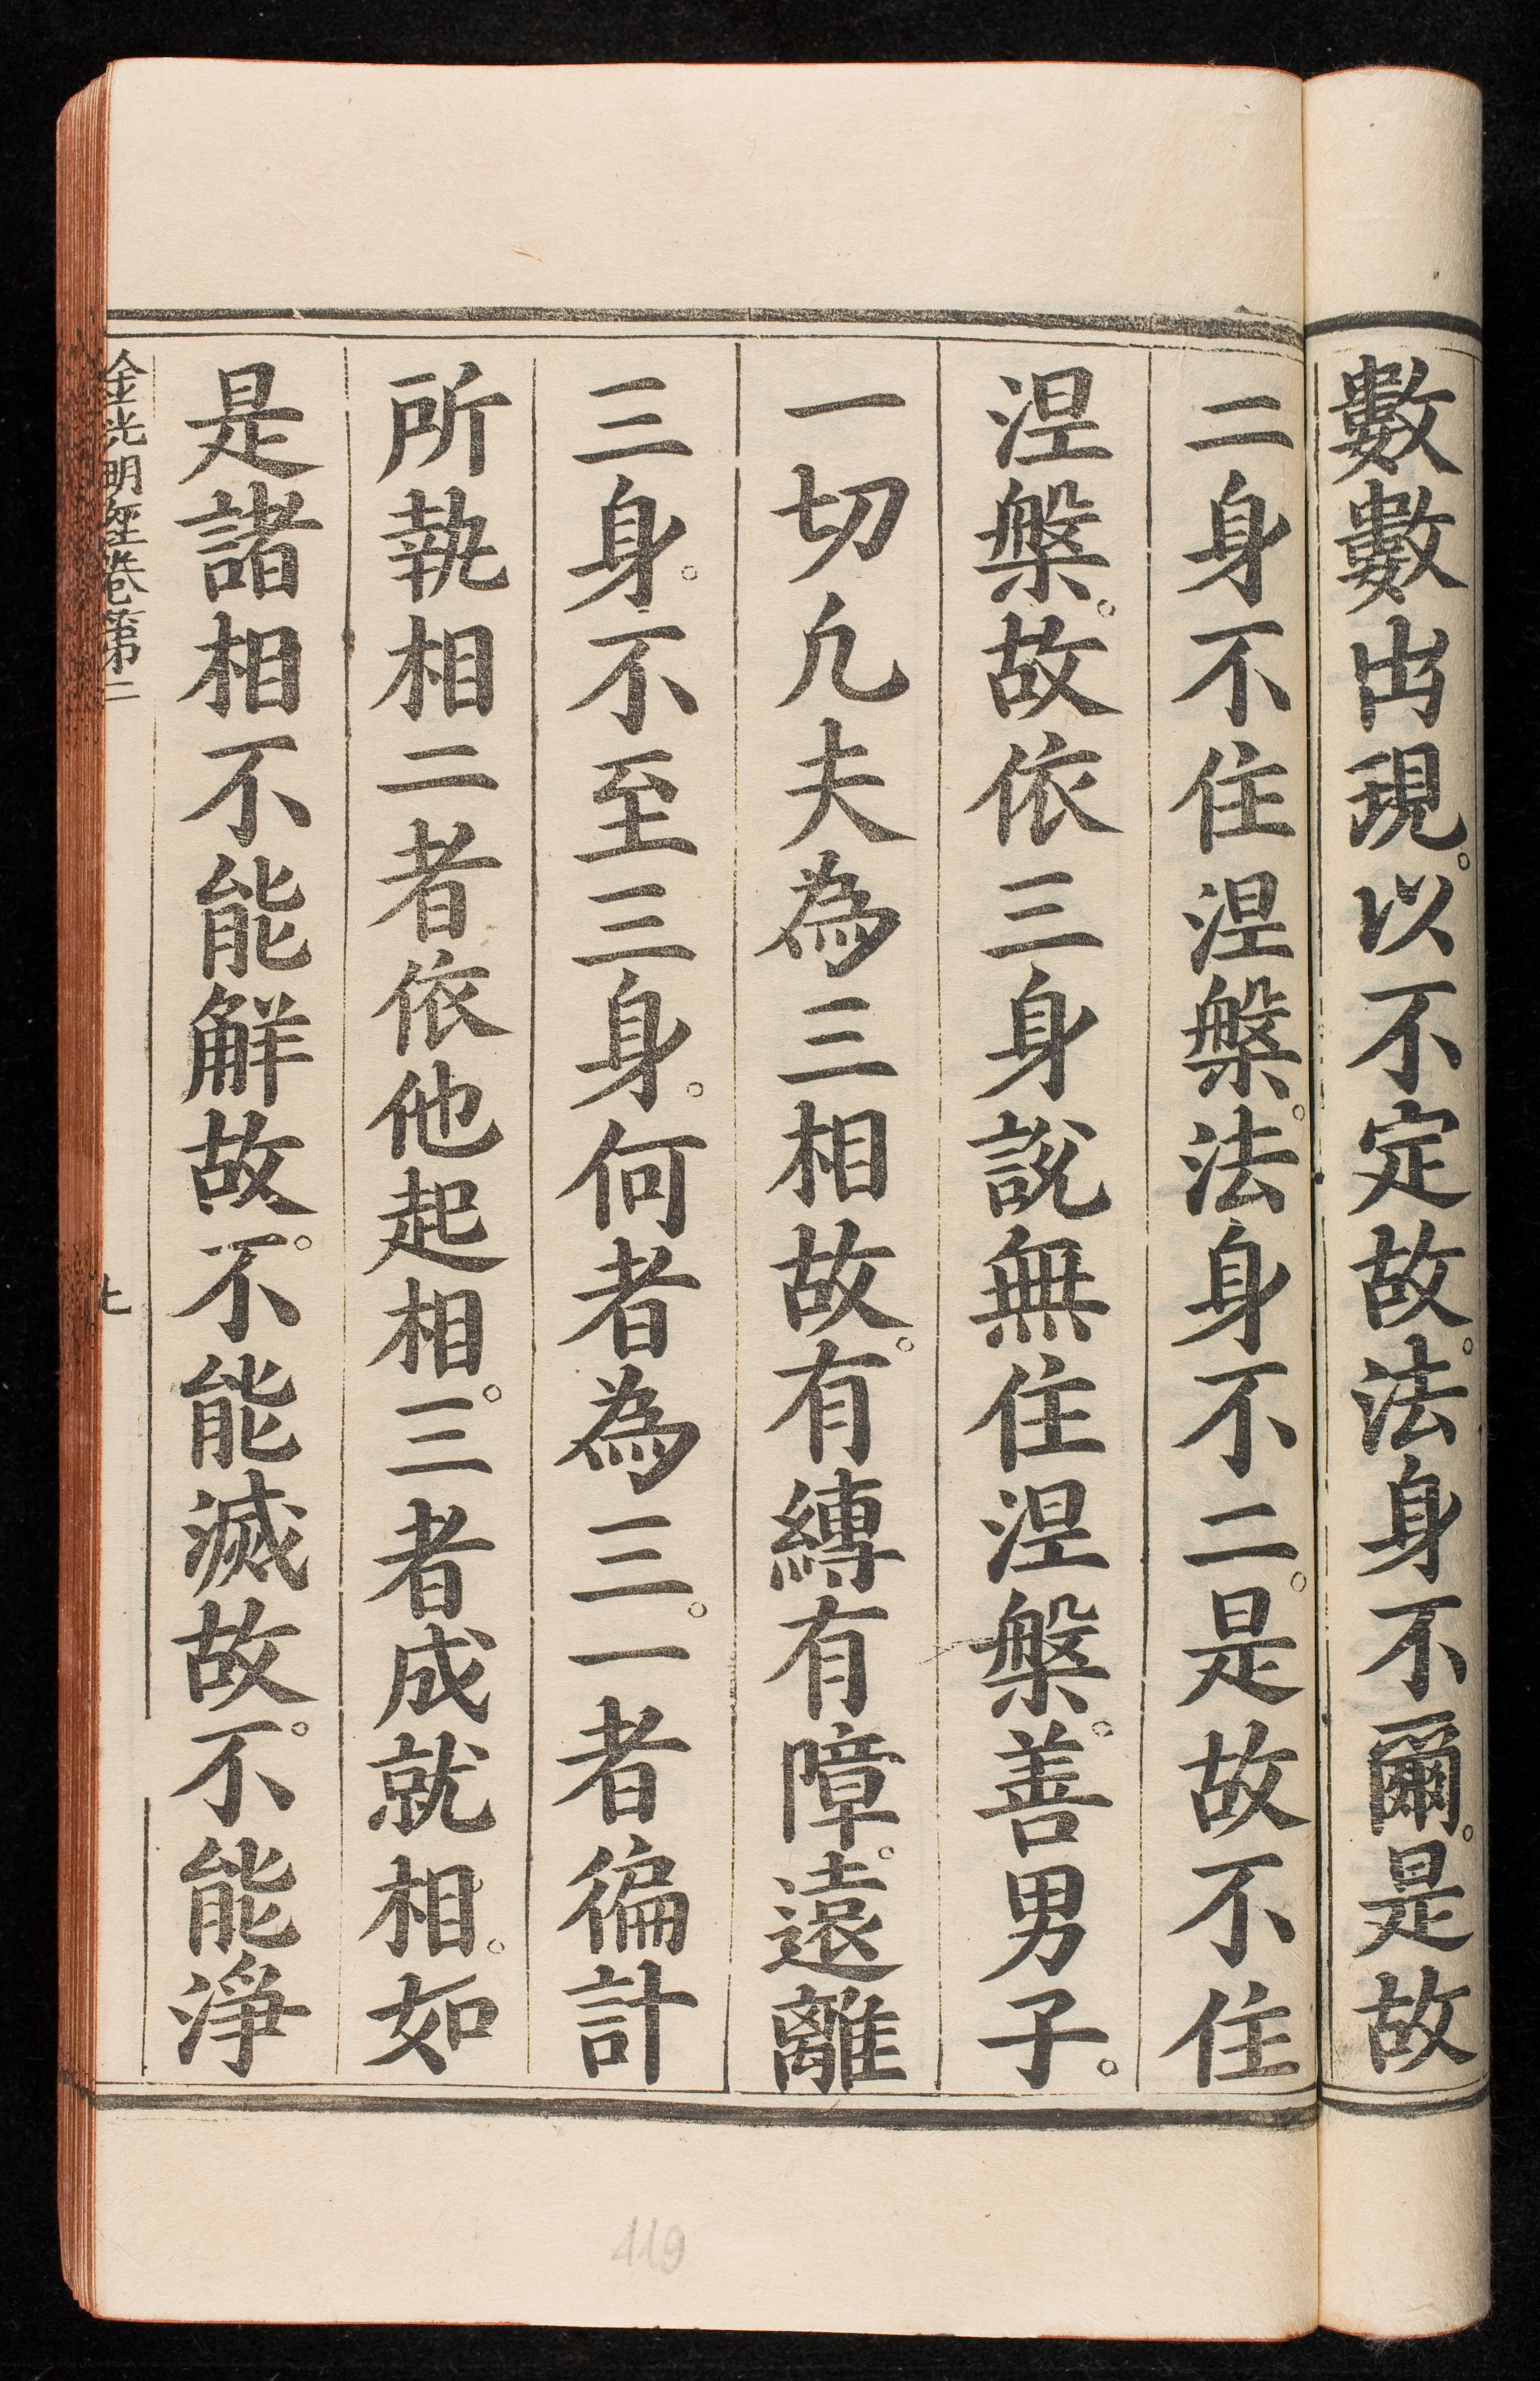 數數出現。以不定故。法身不爾。是故
二身不住涅槃。法身不二。是故不住
涅槃。故依三身說無住涅槃。善男子。
一切凡夫為三相故。有縛有障。遠離
三身。不至三身。何者為三。一者徧計
所執相二者依他起相。三者成就相。如
是諸相不能解故。不能滅故。不能淨
金光明經卷第二
七
119